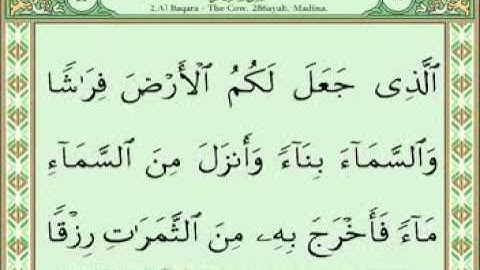 2.Al Baqara - The Cow. 286ayah. Madina.
ٱلَّذِى جَعَلَ لَكُمُ ٱلْأَرْضَ فِرَٰشًا
وَٱلسَّمَآءَ بِنَآءً وَأَنزَلَ مِنَ ٱلسَّمَآءِ
مَآءً فَأَخْرَجَ بِهِۦ مِنَ ٱلثَّمَرَٰتِ رِزْقًا